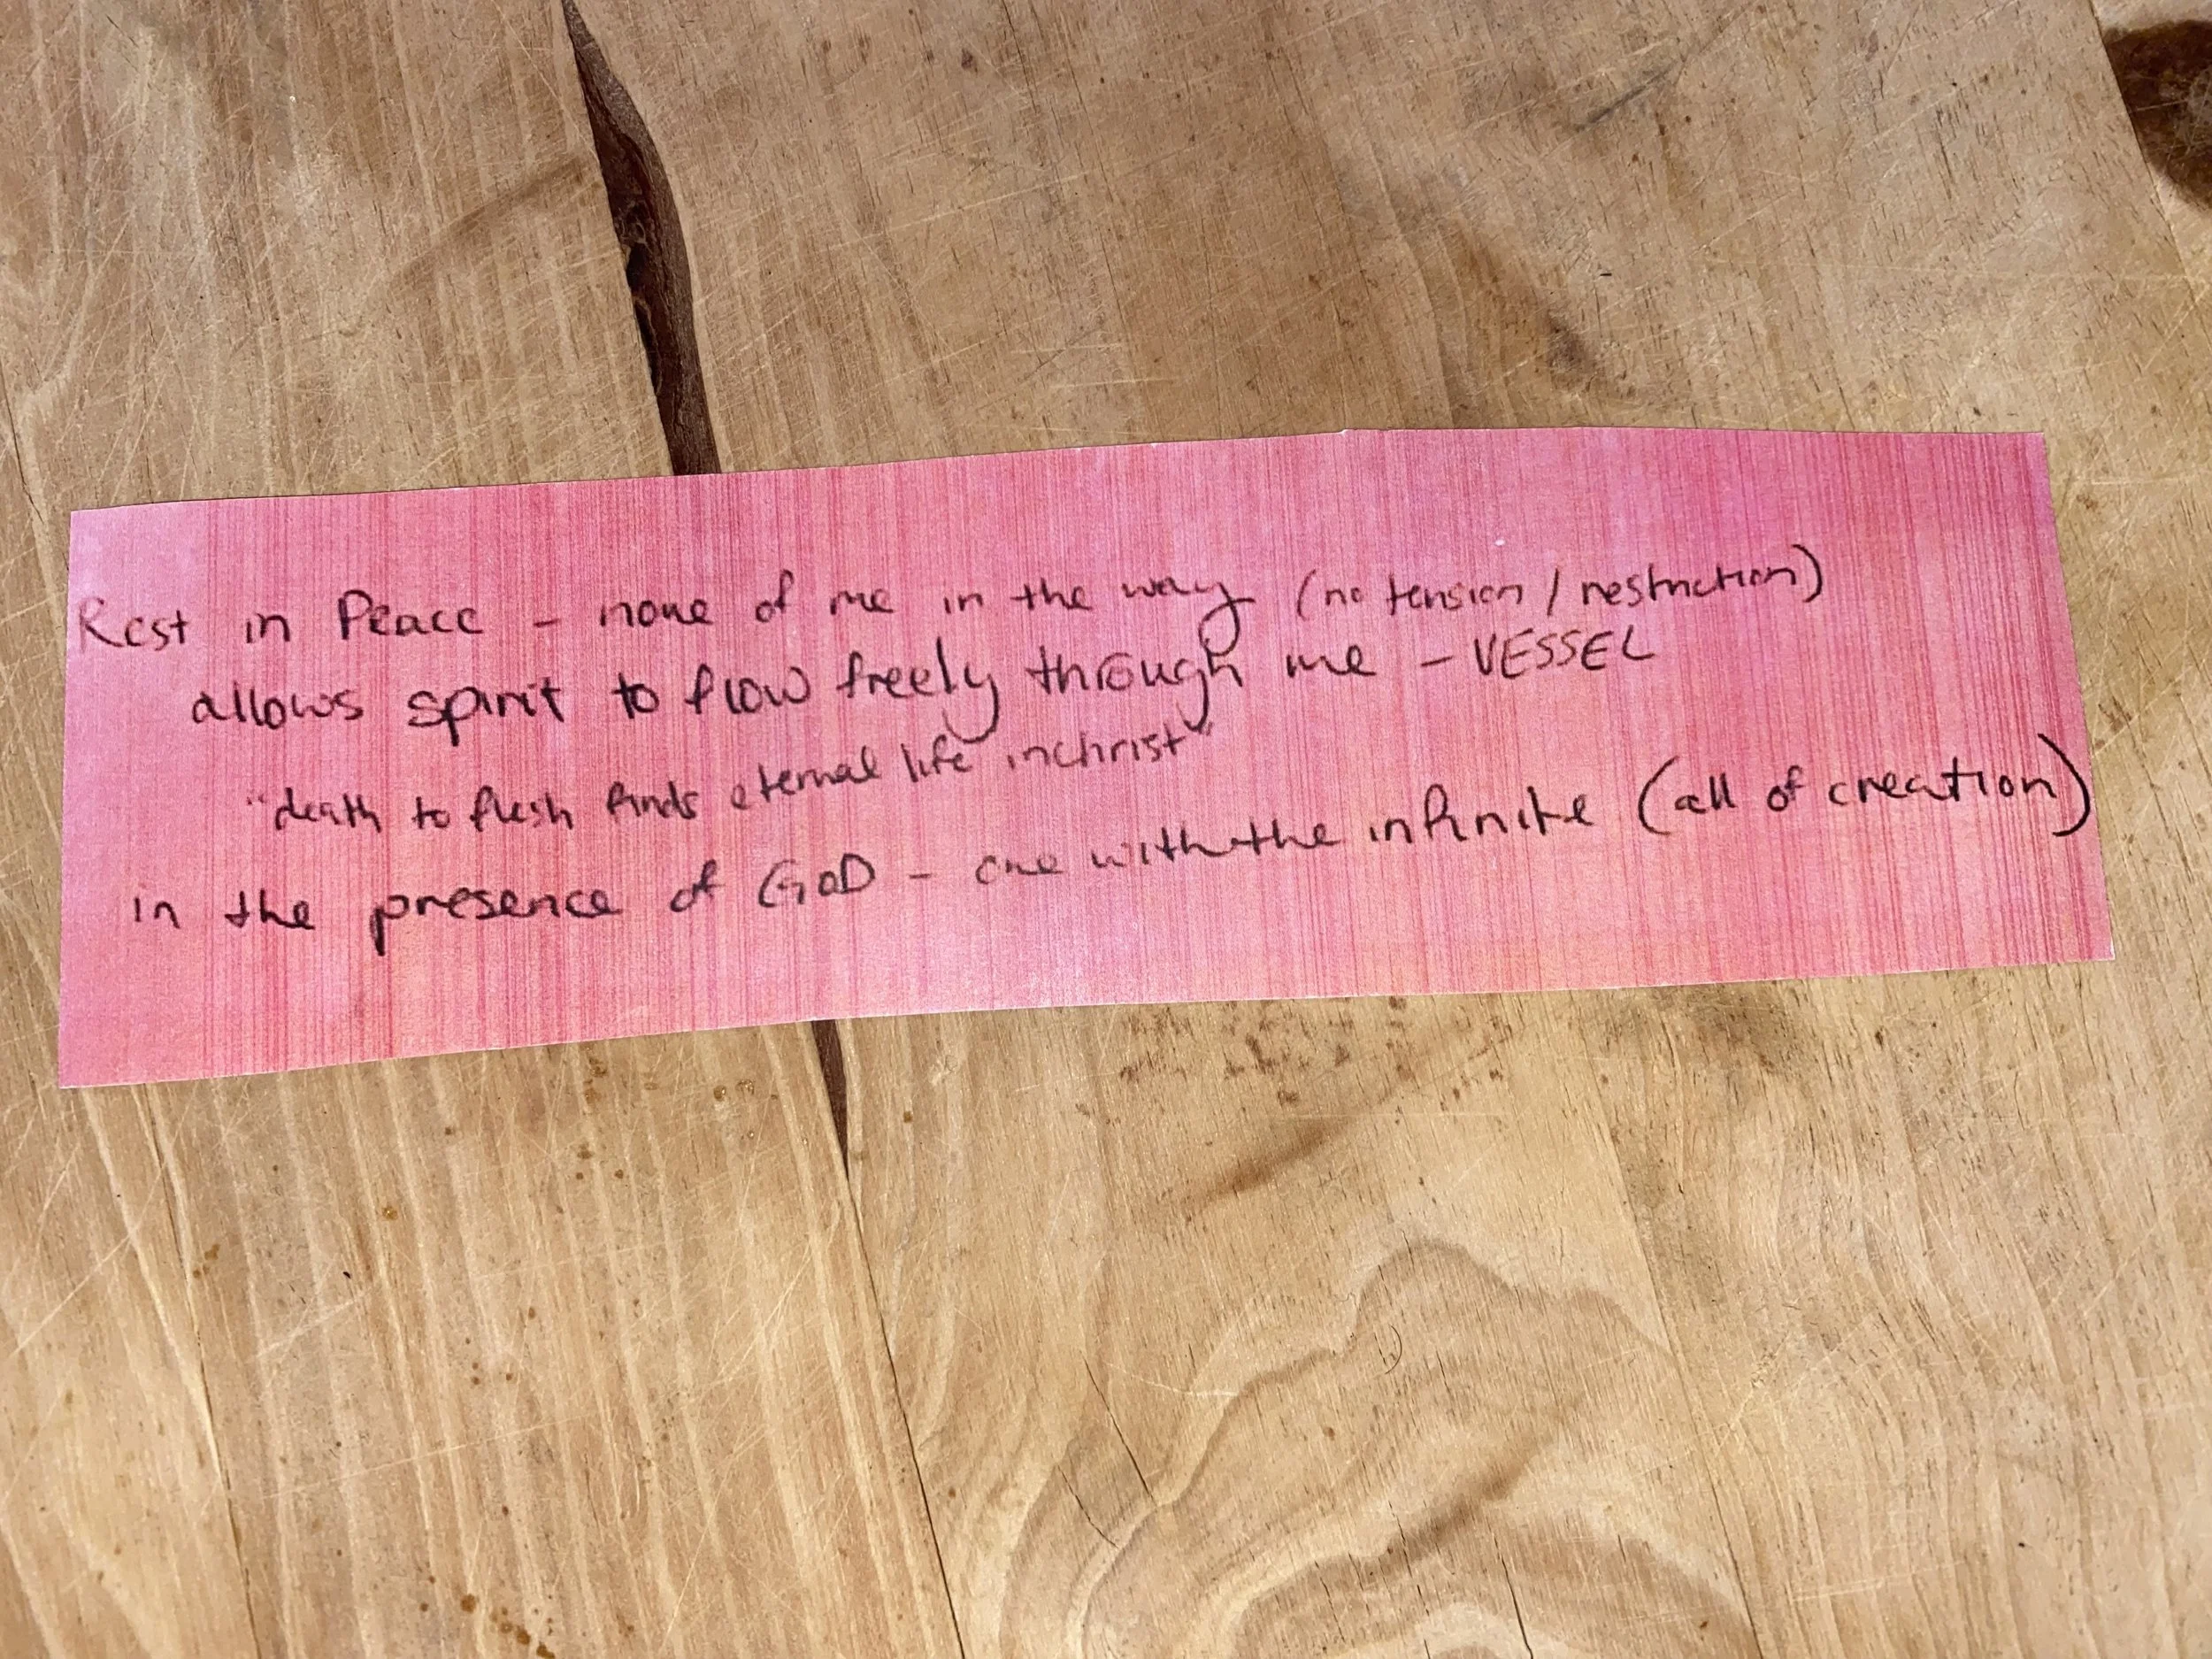 Rest in Peace - none of me in the way (no tension / restriction)
allows spirit to flow freely through me - VESSEL
"death to flesh finds eternal life inchrist"
in the presence of GOD - one with the infinite (all of creation)